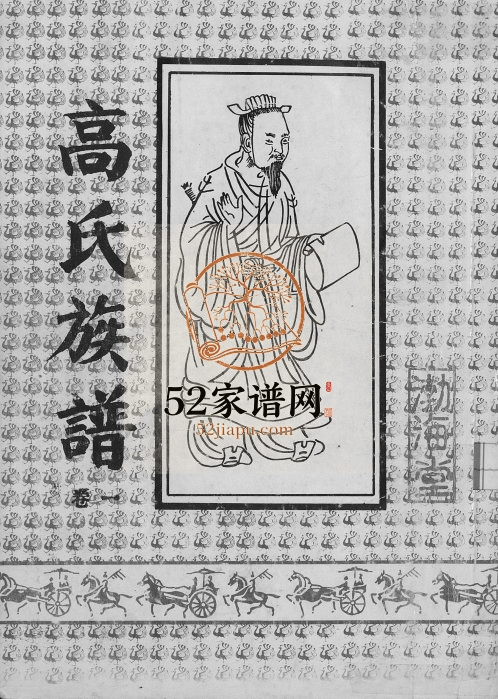 高氏族譜
卷一
渤海堂
52家谱网
52jiapu.com